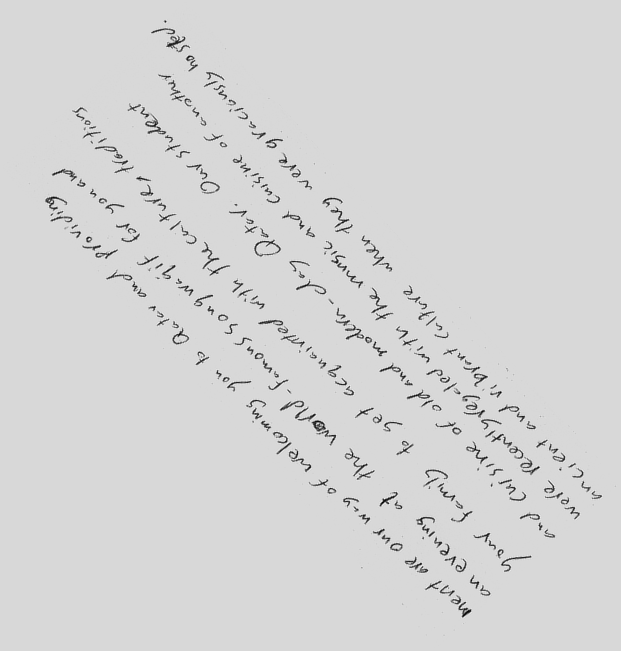 ment are our way of welcoming you to Qatar and providing
an evening at the world-famous Souqwaqif for you and
your family to get acquainted with the culture, traditions
and cuisine of old and modern-day Qatar. Our student
were recently regaled with the music and cuisine of another
ancient and vibrant culture when they were graciously hosted.